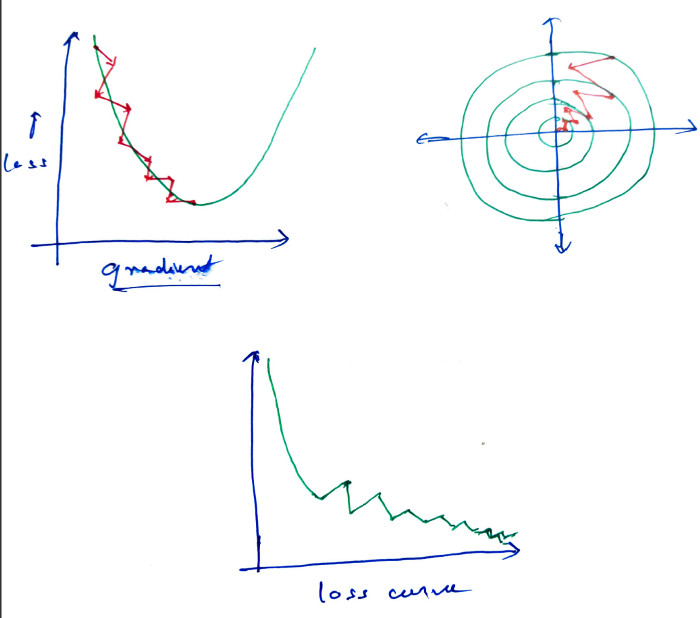 loss
gradient
loss curve